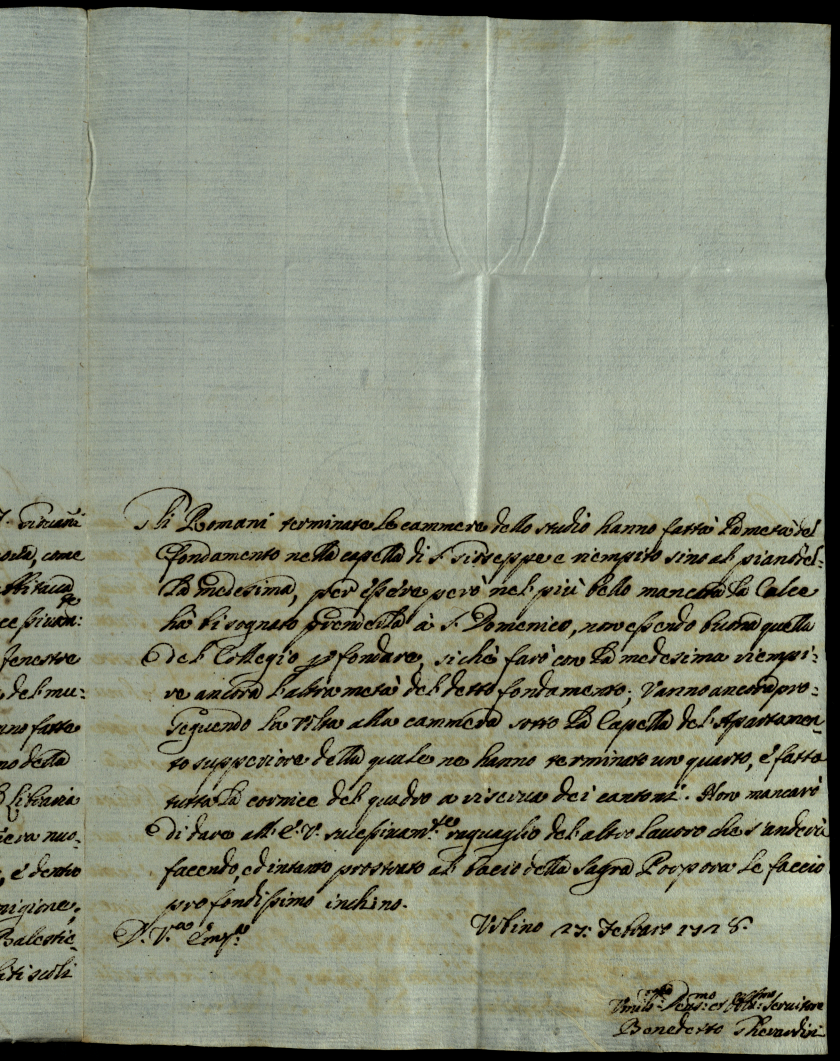 T. Giovanni
come
fenestre
del mu:
nno fatta
no della
Libraria
era nuo-
, e dentro
migione,
Balestie_
Gli Romani terminate le cammere dello studio hanno fatta la metà del
fondamento nella capella di S. Gioseppe e riempito sino al piano del-
la medesima, per essere però nel più bello mancata la Calce
hà bisognato prenderla à S. Domenico, non essendo buona quella
del Collegio p fondare, siche farò con la medesima riempi-
re ancora l'altra metà del detto fondamento; Vanno ancora pro-
seguendo la volta alla cammera sotto la Capella del'Apartamen
to supperiore della quale ne hanno terminato un quarto, e fatta
tutta la cornice del quadro a riserva dei cantoni. Non mancarò
di dare all' E. V. raguaglio del altro lavoro che s'anderà
facendo, ed intanto prostrato al bacio della Sagra Porpora le faccio
profondissimo inchino.
D. V. Em.
Urbino 27. Febraro 1728.
Servitore
Benedetto Gherardini